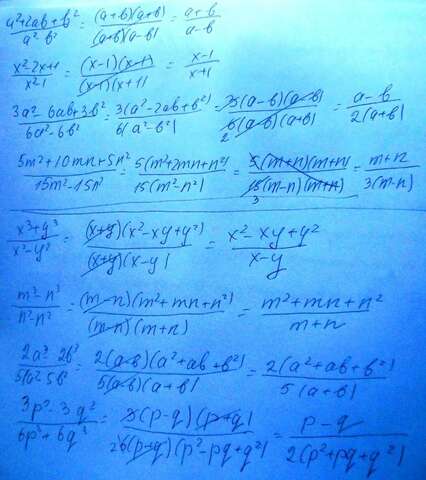 a²+2ab+b² / a²-b² = (a+b)(a+b) / (a+b)(a-b) = a+b / a-b
x²-2x+1 / x²-1 = (x-1)(x-1) / (x-1)(x+1) = x-1 / x+1
3a²-6ab+3b² / 6a²-6b² = 3(a²-2ab+b²) / 6(a²-b²) = 3(a-b)(a-b) / 6(a-b)(a+b) 2 = a-b / 2(a+b)
5m²+10mn+5n² / 15m²-15n² = 5(m²+2mn+n²) / 15(m²-n²) = 5(m+n)(m+n) / 15(m-n)(m+n) 3 = m+n / 3(m-n)
x³+y³ / x²-y² = (x+y)(x²-xy+y²) / (x+y)(x-y) = x²-xy+y² / x-y
m³-n³ / m²-n² = (m-n)(m²+mn+n²) / (m-n)(m+n) = m²+mn+n² / m+n
2a³-2b³ / 5a²-5b² = 2(a-b)(a²+ab+b²) / 5(a-b)(a+b) = 2(a²+ab+b²) / 5(a+b)
3p²-3q² / 6p³+6q³ = 3(p-q)(p+q) / 2 6(p+q)(p²-pq+q²) = p-q / 2(p²+pq+q²)